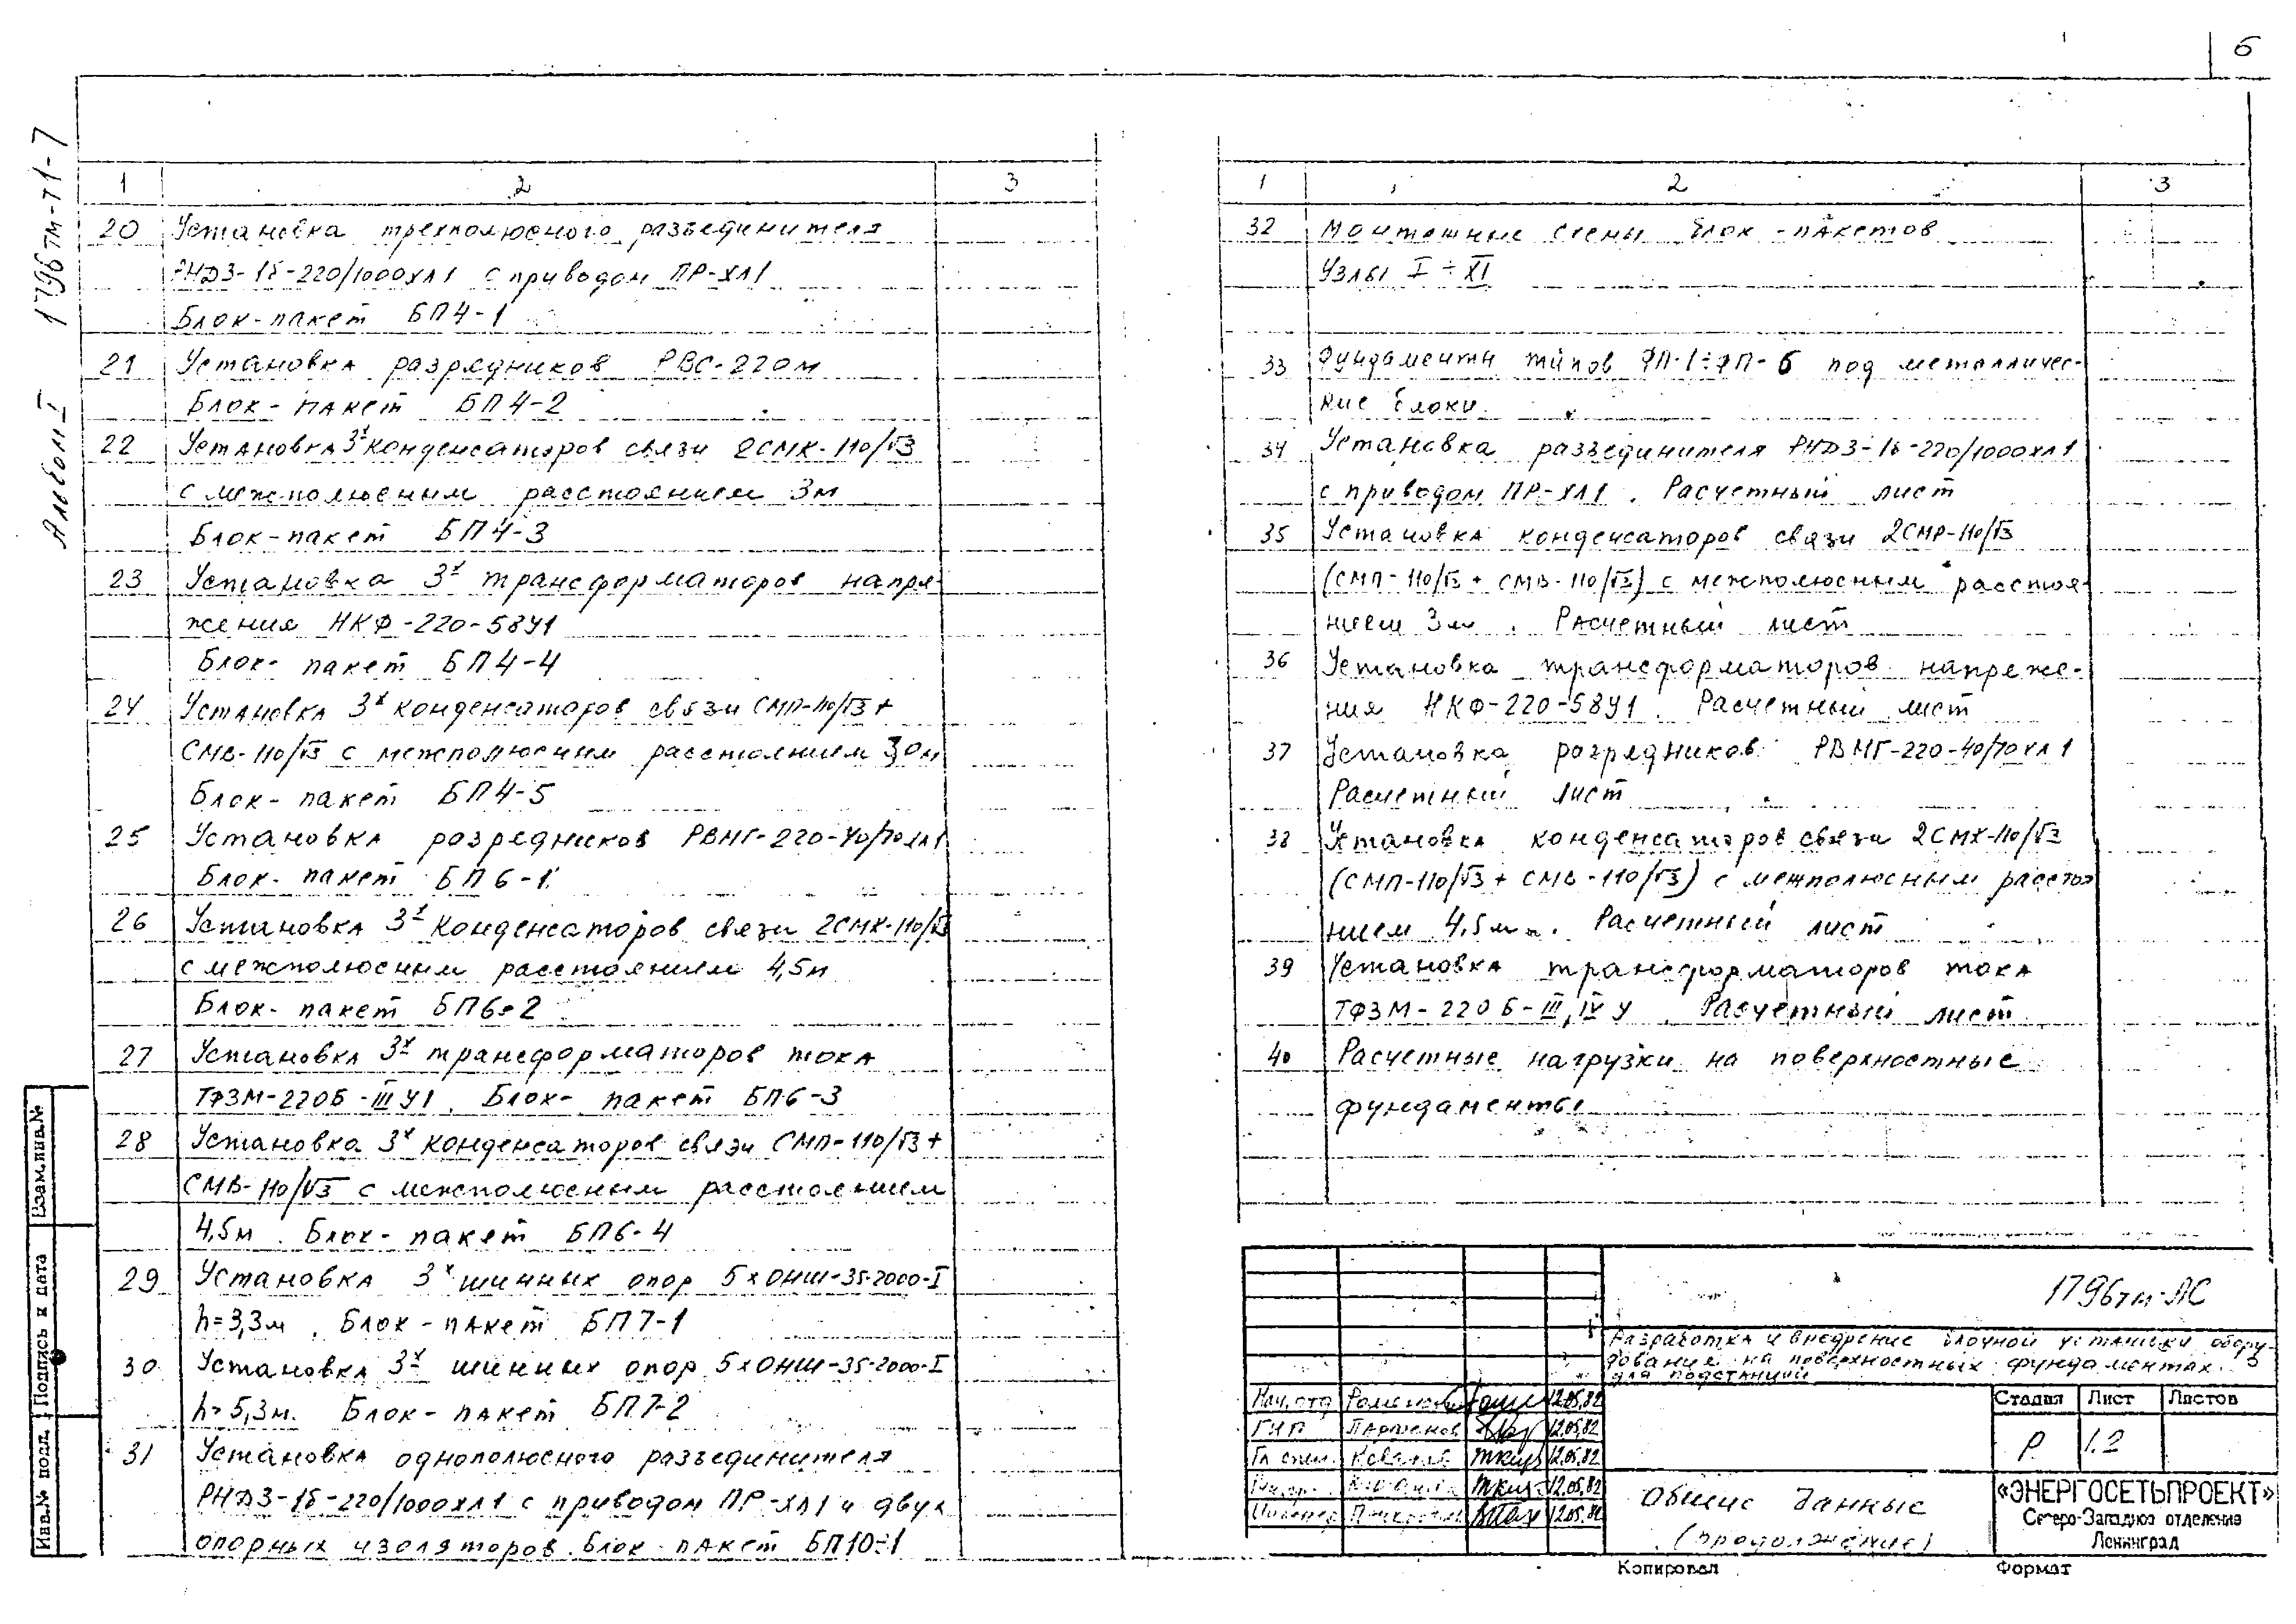 6
Альбом I 1796тм-т1-7
1 2 3
20 Установка трехполюсного разъединителя
РНДЗ-1б-220/1000ХЛ1 с приводом ПР-ХЛ1
Блок-пакет БП4-1
21 Установка разрядников РВС-220м
Блок-пакет БП4-2
22 Установка 3х конденсаторов связи 2СМК-110/√3
с межполюсным расстоянием 3м
Блок-пакет БП4-3
23 Установка 3х трансформаторов напря-
жения НКФ-220-58У1
Блок-пакет БП4-4
24 Установка 3х конденсаторов связи СМП-110/√3+
СМВ-110/√3 с межполюсным расстоянием 3,0м
Блок-пакет БП4-5
25 Установка разрядников РВМГ-220-40/70ХЛ1
Блок-пакет БП6-1
26 Установка 3х конденсаторов связи 2СМК-110/√3
с межполюсным расстоянием 4,5м
Блок-пакет БП6-2
27 Установка 3х трансформаторов тока
ТФЗМ-220Б-III У1. Блок-пакет БП6-3
28 Установка 3х конденсаторов связи СМП-110/√3+
СМВ-110/√3 с межполюсным расстоянием
4,5м. Блок-пакет БП6-4
29 Установка 3х шинных опор 5хОНШ-35-2000-I
h=3,3м. Блок-пакет БП7-1
30 Установка 3х шинных опор 5хОНШ-35-2000-I
h=5,3м. Блок-пакет БП7-2
31 Установка однополюсного разъединителя
РНДЗ-1б-220/1000ХЛ1 с приводом ПР-ХЛ1 и двух
опорных изоляторов. Блок-пакет БП10-1
1 2 3
32 Монтажные схемы блок-пакетов
Узлы I ÷ XI
33 Фундаменты типов ФП-1÷ФП-6 под металличес-
кие блоки
34 Установка разъединителя РНДЗ-1б-220/1000ХЛ1
с приводом ПР-ХЛ1. Расчетный лист
35 Установка конденсаторов связи 2СМР-110/√3
(СМП-110/√3 + СМВ-110/√3) с межполюсным расстоя-
нием 3м. Расчетный лист
36 Установка трансформаторов напряже-
ния НКФ-220-58У1. Расчетный лист
37 Установка разрядников РВМГ-220-40/70ХЛ1
Расчетный лист
38 Установка конденсаторов связи 2СМК-110/√3
(СМП-110/√3 + СМВ-110/√3) с межполюсным расстоя
нием 4,5м. Расчетный лист
39 Установка трансформаторов тока
ТФЗМ-220Б-III, IV У. Расчетный лист
40 Расчетные нагрузки на поверхностные
фундаменты
1796тм-ЛС
Разработка и внедрение блочной установки обору-
дования на поверхностных фундаментах
для подстанций
Нач. отд 12.05.82
ГИП 12.05.82
Гл. спец. 12.05.82
12.05.82
Инженер 12.05.82
Стадия Лист Листов
Р 1.2
Общие данные
(продолжение)
«ЭНЕРГОСЕТЬПРОЕКТ»
Северо-Западное отделение
Ленинград
Копировал Формат
Взам.инв.№
Подпись и дата
Инв.№ подл.